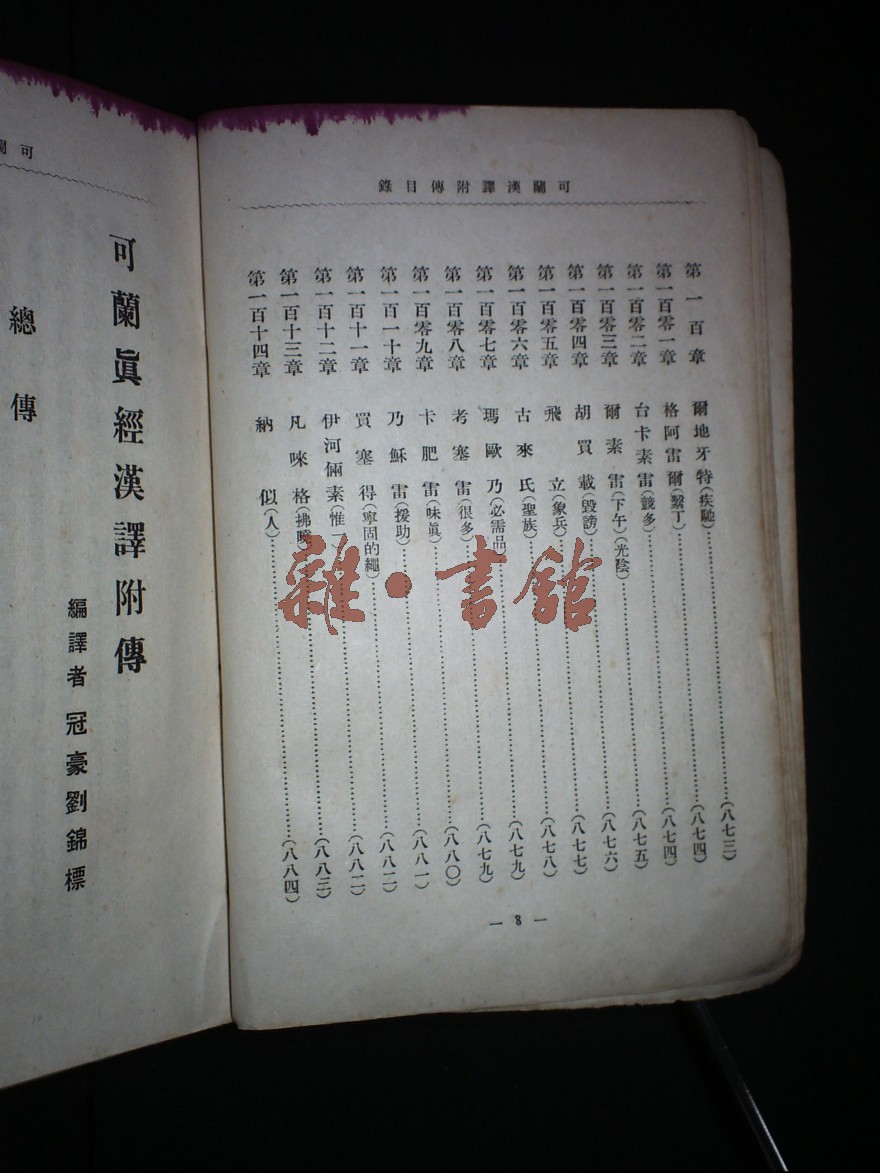 可蘭漢譯附傳目錄
第一百章 爾地牙特(疾馳)……(八七三)
第一百零一章 格阿雷爾(繫丁)……(八七四)
第一百零二章 台卡素雷(競多)……(八七四)
第一百零三章 爾素雷(下午)(光陰)……(八七五)
第一百零四章 胡買載(毀謗)……(八七六)
第一百零五章 飛立(象兵)……(八七七)
第一百零六章 古來氏(聖族)……(八七八)
第一百零七章 瑪歐乃(必需品)……(八七九)
第一百零八章 考塞雷(很多)……(八七九)
第一百零九章 卡肥雷(味眞)……(八八〇)
第一百一十章 乃穌雷(援助)……(八八一)
第一百十一章 買塞得(寧固的繩)……(八八二)
第一百十二章 伊河倆素(惟一……(八八二)
第一百十三章 凡唻格(拂曉)……(八八三)
第一百十四章 納似(人)……(八八四)
— 8 —
可
可蘭眞經漢譯附傳
編譯者 冠豪劉錦標
總傳
雜·書館